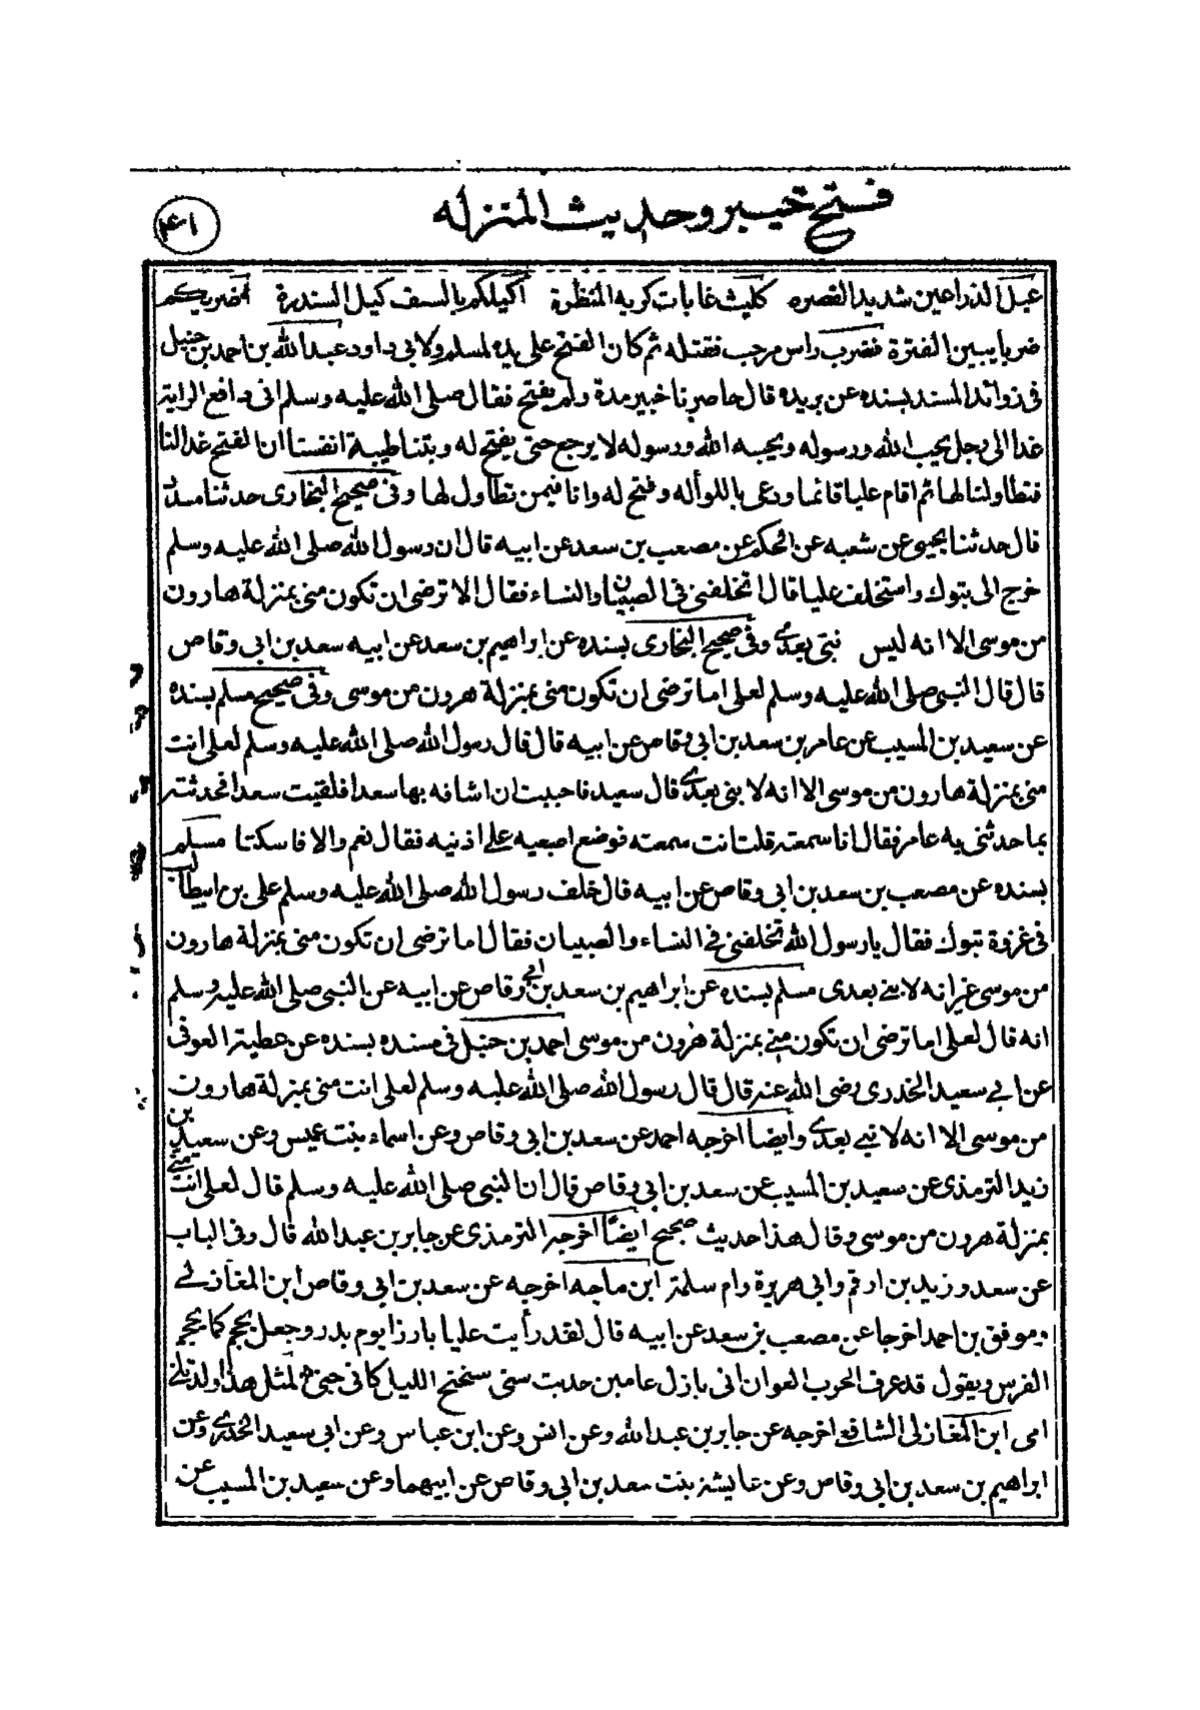 فتح خيبر وحديث المنزله
عبل الذراعين شديد القصره كليث غابات كريه المنظرة اكيلكم بالسف كيل السندرة اضربكم
ضربا يبين الفقرة فضرب راس مرحب فقتله ثم كان الفتح على يده لمسلم ولابي داود عبد الله بن احمد بن حنبل
فى زوائد المسند بسنده عن بريده قال حاصرنا خيبر مدة ولم يفتح فقال صلى الله عليه وسلم انى دافع الراية
غدا الى رجل يحب الله ورسوله ويحبه الله ورسوله لا يرجع حتى يفتح له وبتنا طيبة انفسنا ان الفتح غدا لنا
فتطاولنا لها ثم اقام عليا قائما ودعى باللواله وفتح له وانا فيمن تطاول لها وفى صحيح البخارى حدثنا مسدد
قال حدثنا يحيى عن شعبه عن الحكم عن مصعب بن سعد عن ابيه قال ان رسول الله صلى الله عليه وسلم
خرج الى تبوك واستخلف عليا قال اتخلفنى فى الصبيان والنساء فقال الا ترضى ان تكون منى بمنزلة هارون
من موسى الا انه ليس نبى بعدى وفى صحيح البخارى بسنده عن ابراهيم بن سعد عن ابيه سعد بن ابى وقاص
قال قال النبى صلى الله عليه وسلم لعلى اما ترضى ان تكون منى بمنزلة هرون من موسى وفى صحيح مسلم بسنده
عن سعيد بن المسيب عن عامر بن سعد بن ابى وقاص عن ابيه قال قال رسول الله صلى الله عليه وسلم لعلى انت
منى بمنزلة هارون من موسى الا انه لا نبى بعدى قال سعيد فاحببت ان اشافه بها سعدا فلقيت سعدا فحدثته
بما حدثنى به عامر فقال انا سمعته قلت انت سمعته فوضع اصبعيه على اذنيه فقال نعم والا فاسكتا مسلم
بسنده عن مصعب بن سعد بن ابى وقاص عن ابيه قال خلف رسول الله صلى الله عليه وسلم على بن ابيطالب
فى غزوة تبوك فقال يا رسول الله تخلفنى فى النساء والصبيان فقال اما ترضى ان تكون منى بمنزلة هارون
من موسى غير انه لا نبى بعدى مسلم بسنده عن ابراهيم بن سعد بن ابى وقاص عن ابيه عن النبى صلى الله عليه وسلم
انه قال لعلى اما ترضى ان تكون منى بمنزلة هرون من موسى احمد بن حنبل فى مسنده بسنده عن عطية العوفى
عن ابى سعيد الخدرى رضى الله عنه قال قال رسول الله صلى الله عليه وسلم لعلى انت منى بمنزلة هارون
من موسى الا انه لا نبى بعدى وايضا اخرجه احمد عن سعد بن ابى وقاص وعن اسماء بنت عميس وعن سعيد بن
زيد الترمذى عن سعيد بن المسيب عن سعد بن ابى وقاص قال ان النبى صلى الله عليه وسلم قال لعلى انت منى
بمنزلة هرون من موسى وقال هذا حديث صحيح ايضًا اخرجه الترمذى عن جابر بن عبد الله قال وفى الباب
عن سعد وزيد بن ارقم وابى هريرة وام سلمة ابن ماجه اخرجه عن سعد بن ابى وقاص ابن المغازلى
وموفق بن احمد اخرجا عن مصعب بن سعد عن ابيه قال لقد رأيت عليا بارزا يوم بدر وجعل يحجم كما يحجم
الفرس ويقول قد عرف الحرب العوان انى بازل عامين حديث سنى سنحنح الليل كانى جنى لمثل هذا ولدتنى
امى ابن المغازلى الشافعى اخرجه عن جابر بن عبد الله وعن انس وعن ابن عباس وعن ابى سعيد الخدرى وعن
ابراهيم بن سعد بن ابى وقاص وعن عايشة بنت سعد بن ابى وقاص عن ابيهما وعن سعيد بن المسيب عن